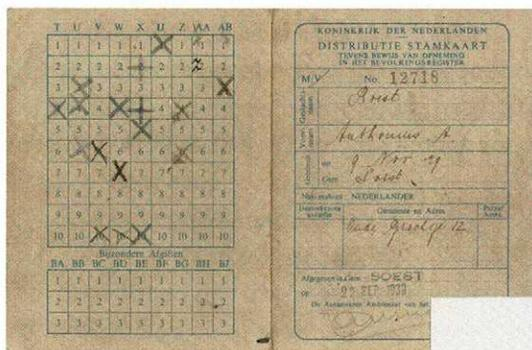 T U V W X IJ Z AA AB
1 1 1 1 1 1 1 1 1
2 2 2 2 2 2 2 2 2
3 3 3 3 3 3 3 3 3
4 4 4 4 4 4 4 4 4
5 5 5 5 5 5 5 5 5
6 6 6 6 6 6 6 6 6
7 7 7 7 7 7 7 7 7
8 8 8 8 8 8 8 8 8
9 9 9 9 9 9 9 9 9
10 10 10 10 10 10 10 10 10
Bijzondere Afgiften
BA BB BC BD BE BF BG BH BJ
1 1 1 1 1 1 1 1 1
2 2 2 2 2 2 2 2 2
3 3 3 3 3 3 3 3 3
KONINKRIJK DER NEDERLANDEN
DISTRIBUTIE STAMKAART
TEVENS BEWIJS VAN OPNEMING
IN HET BEVOLKINGSREGISTER
M/V No. 12718
Roest
Anthonius A.
9 Nov. 29
Soest
NEDERLANDER
Gemeente en Adres
12
Afgegeven te SOEST
op 22 SEP 1939
De Aangewezen Ambtenaar van het